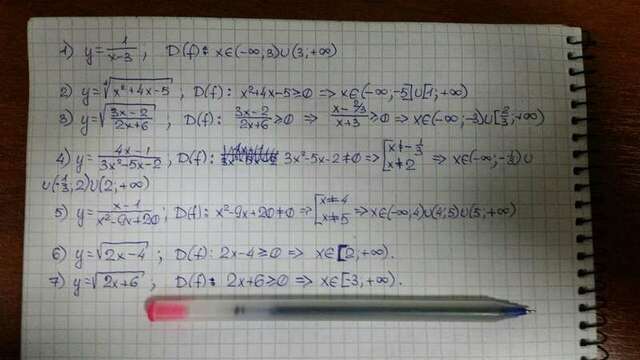 1) y=1/(x-3) ; D(f): x∈(-∞,3)∪(3,+∞)
2) y=⁴√(x²+4x-5) ; D(f): x²+4x-5≥0 => x∈(-∞,-5]∪[1,+∞)
3) y=√((3x-2)/(2x+6)) ; D(f): (3x-2)/(2x+6)≥0 => (x-2/3)/(x+3)≥0 => x∈(-∞,-3)∪[2/3,+∞)
4) y=(4x-1)/(3x²-5x-2) , D(f): 3x²-5x-2≠0 => [x≠-1/3 x≠2 => x∈(-∞,-1/3)∪
∪(-1/3,2)∪(2,+∞)
5) y=(x-1)/(x²-9x+20) ; D(f): x²-9x+20≠0 => [x≠4 x≠5 => x∈(-∞,4)∪(4;5)∪(5,+∞)
6) y=√(2x-4) ; D(f): 2x-4≥0 => x∈[2,+∞).
7) y=√(2x+6) ; D(f): 2x+6≥0 => x∈[-3,+∞).